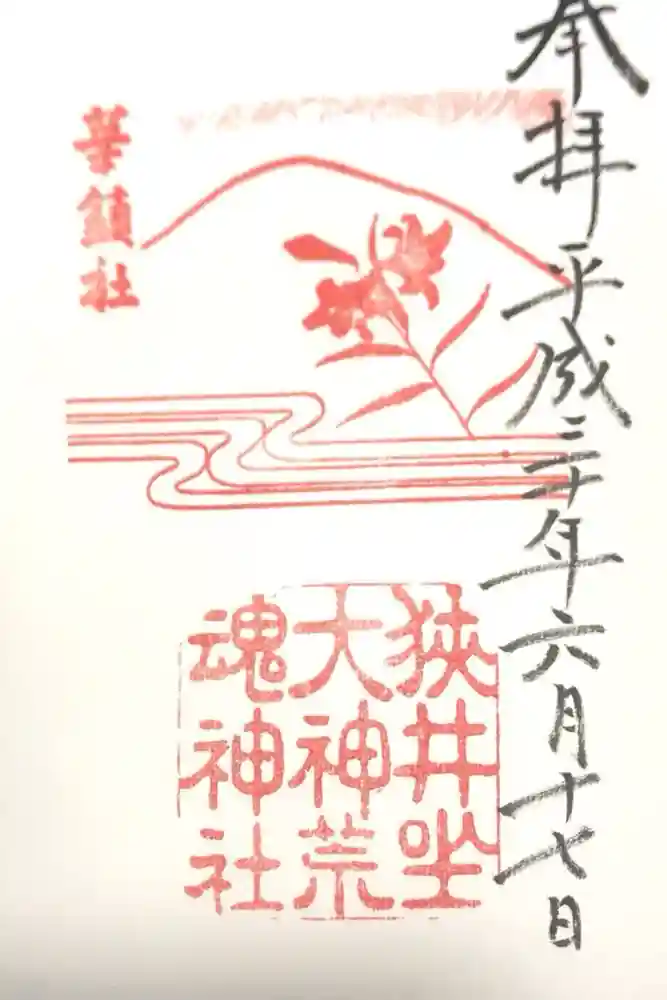 奉拝平成三十年六月十七日
華鎮社
狭井坐
大神荒
魂神社